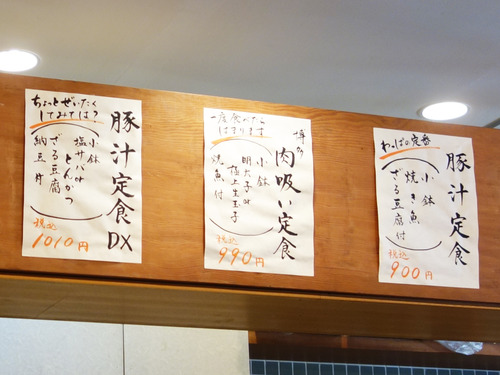 ちょっとぜいたく
してみては?
豚汁定食DX
小鉢
塩サバorとんかつ
ざる豆腐
納豆付
税込
1010円
一度食べたら
はまります
博多
肉吸い定食
小鉢
明太子or
極上生玉子
焼魚付
税込
990円
わっぱの定番
豚汁定食
小鉢
焼き魚
ざる豆腐付
税込
900円